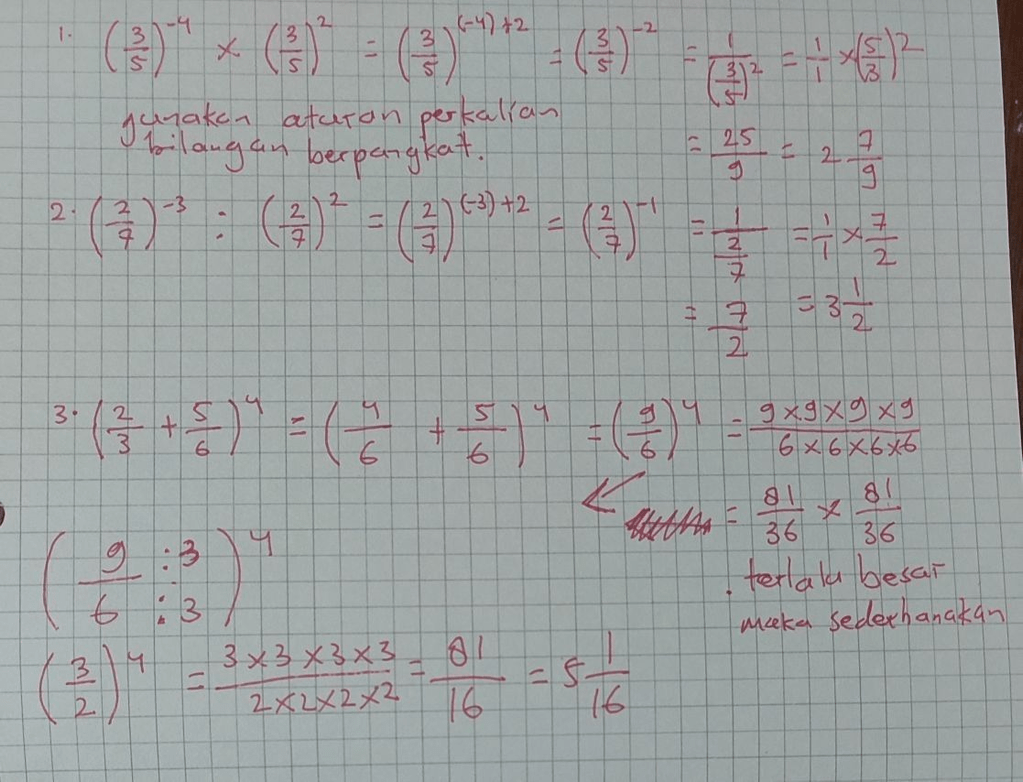 1. (3/5)^-4 × (3/5)^2 = (3/5)^(-4)+2 = (3/5)^-2 = 1/(3/5)^2 = 1/1 × (5/3)^2
gunakan aturan perkalian
bilangan berpangkat.
= 25/9 = 2 7/9
2. (2/7)^-3 : (2/7)^2 = (2/7)^(-3)+2 = (2/7)^-1 = 1/(2/7) = 1/1 × 7/2
= 7/2 = 3 1/2
3. (2/3 + 5/6)^4 = (4/6 + 5/6)^4 = (9/6)^4 = 9×9×9×9/6×6×6×6
= 81/36 × 81/36
. terlalu besar
maka sederhanakan
(9:3/6:3)^4
(3/2)^4 = 3×3×3×3/2×2×2×2 = 81/16 = 5 1/16